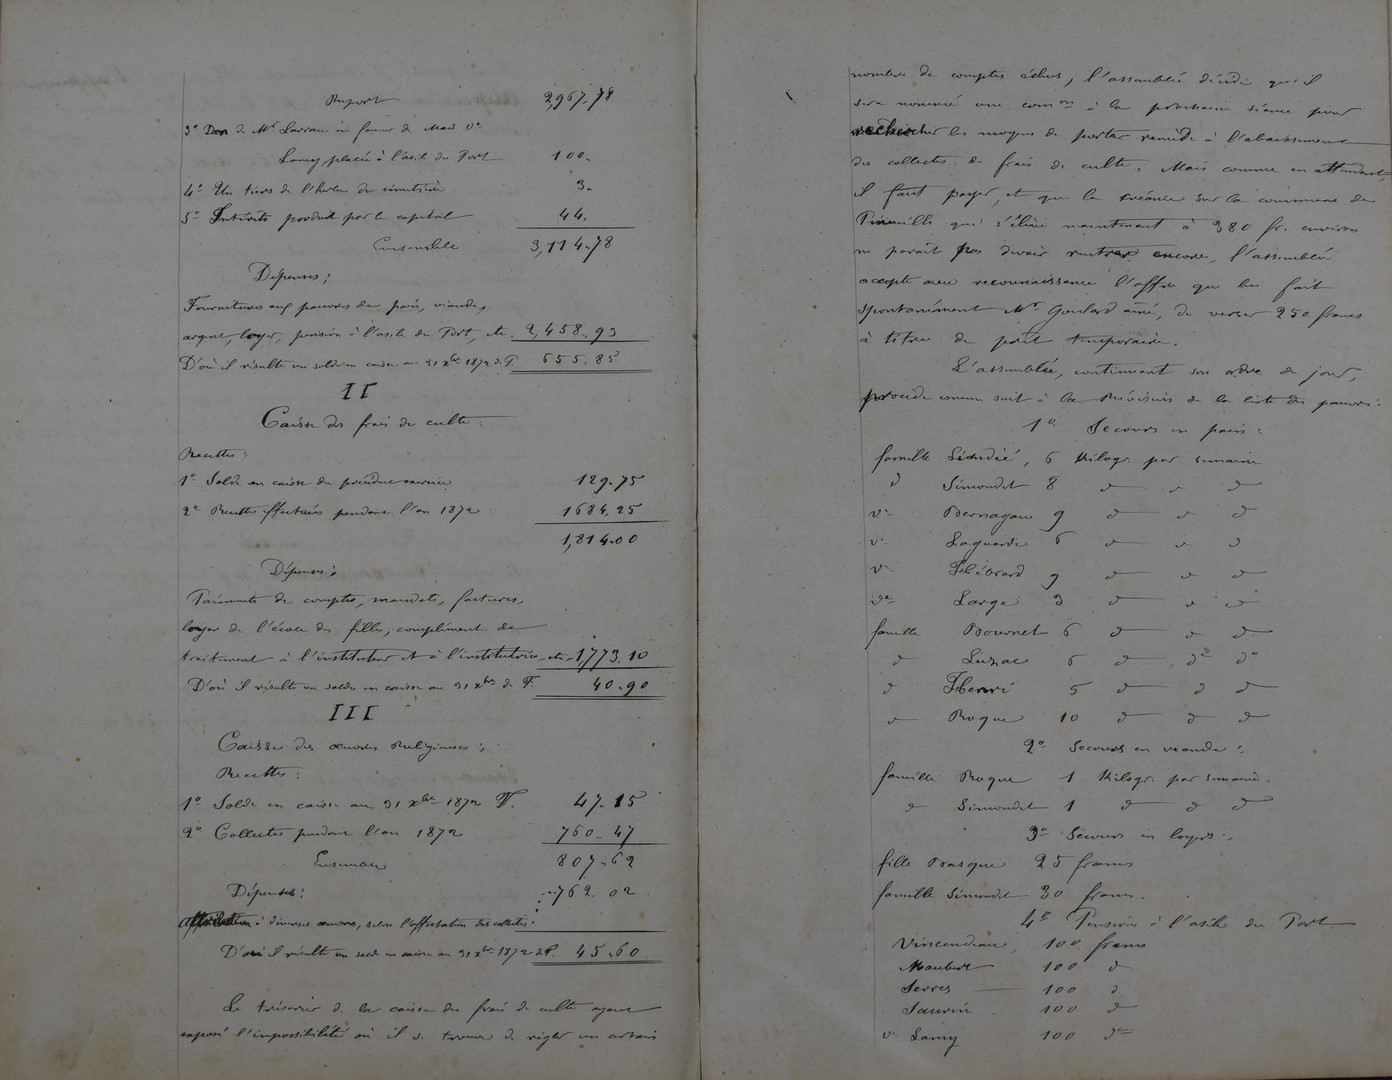 Report 2,967,78
3° Don de Mr Larrau en faveur de Mad Ve
Lamy, placée à l'asile du Port 100.
4° Un tiers de l'herbe du cimetière 3.
5° Intérêts produit par le capital 44.
Ensemble 3,114.78
Dépenses;
Fournitures aux pauvres de pain, viande,
argent, loyer, pension à l'asile du Port, etc. 2,458.93
D'où il résulte un solde en caisse au 31 Xbre 1872 de F. 655.85
II
Caisse des frais de culte:
Recettes:
1° Solde en caisse du précédent exercice 129.75
2° Recettes effectuées pendant l'an 1872 1684.25
1,814.00
Dépenses;
Paiements de comptes, mandats, factures,
loyer de l'école des filles, complément de
traitement à l'instituteur et à l'institutrice, etc. 1,773.10
D'où il résulte un solde en caisse au 31 Xbre de F. 40.90
III
Caisse des œuvres Religieuses:
Recettes:
1° Solde en caisse au 31 Xbre 1872 F. 47.15
2° Collectes pendant l'an 1872 760.47
Ensemble 807.62
Dépenses: 762.02
à diverses œuvres, selon l'affectation des collectes.
D'où il résulte un solde en caisse au 31 Xbre 1872 de F. 45.60
Le trésorier de la caisse des frais de culte ayant
exposé l'impossibilité où il se trouve de régler un certain
nombre de comptes échus, l'assemblée décide qu'il
sera nommé une comon à la prochaine séance pour
rechercher les moyens de porter remède à l'abaissement
des collectes de frais de culte. Mais comme en attendant,
il faut payer, et que la créance sur la commune de
qui s'élève maintenant à 380 fr. environ
ne paraît pas devoir rentrer encore, l'assemblée
accepte avec reconnaissance l'offre que lui fait
spontanément Mr Goulard aîné, de verser 250 francs
à titre de prêt temporaire.
L'assemblée, continuant son ordre du jour,
procède comme suit à la Révision de la liste des pauvres:
1° Secours en pain:
famille 6 Kilogr. par semaine
d° Simondet 8 d° d° d°
Ve Bernagau 9 d° d° d°
Ve Laguarde 6 d° d° d°
Ve Hébrard 9 d° d° d°
Ve Large 3 d° d° d°
famille Bournet 6 d° d° d°
d° Luzac 6 d° d° d°
d° Henri 5 d° d° d°
d° Roque 10 d° d° d°
2° Secours en viande:
famille Roque 1 Kilogr. par semaine.
d° Simondet 1 d° d° d°
3° Secours en loyers:
fille Basque 25 francs
famille Simondet 30 francs.
4° Pensions à l'asile du Port
Vincendeau, 100 francs
Maubert 100 d°
Serres 100 d°
Saurin 100 d°
Ve Lamy 100 d°